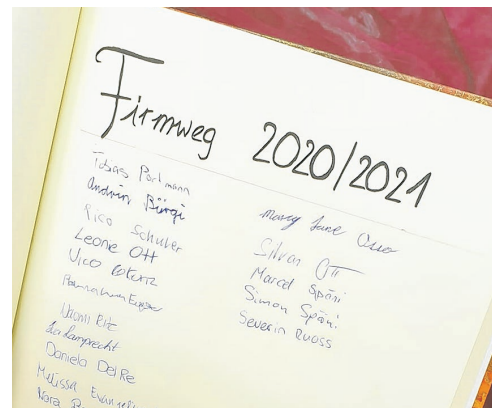 Firmweg 2020/2021
Tobias Portmann
Andrin Bürgi
Rico Schuler
Leonie Ott
Vico
Naomi
Lea Lamprecht
Daniela Del Re
Melissa
Mary Jane
Silvan Ott
Marcel Späni
Simon Späni
Severin Ruoss